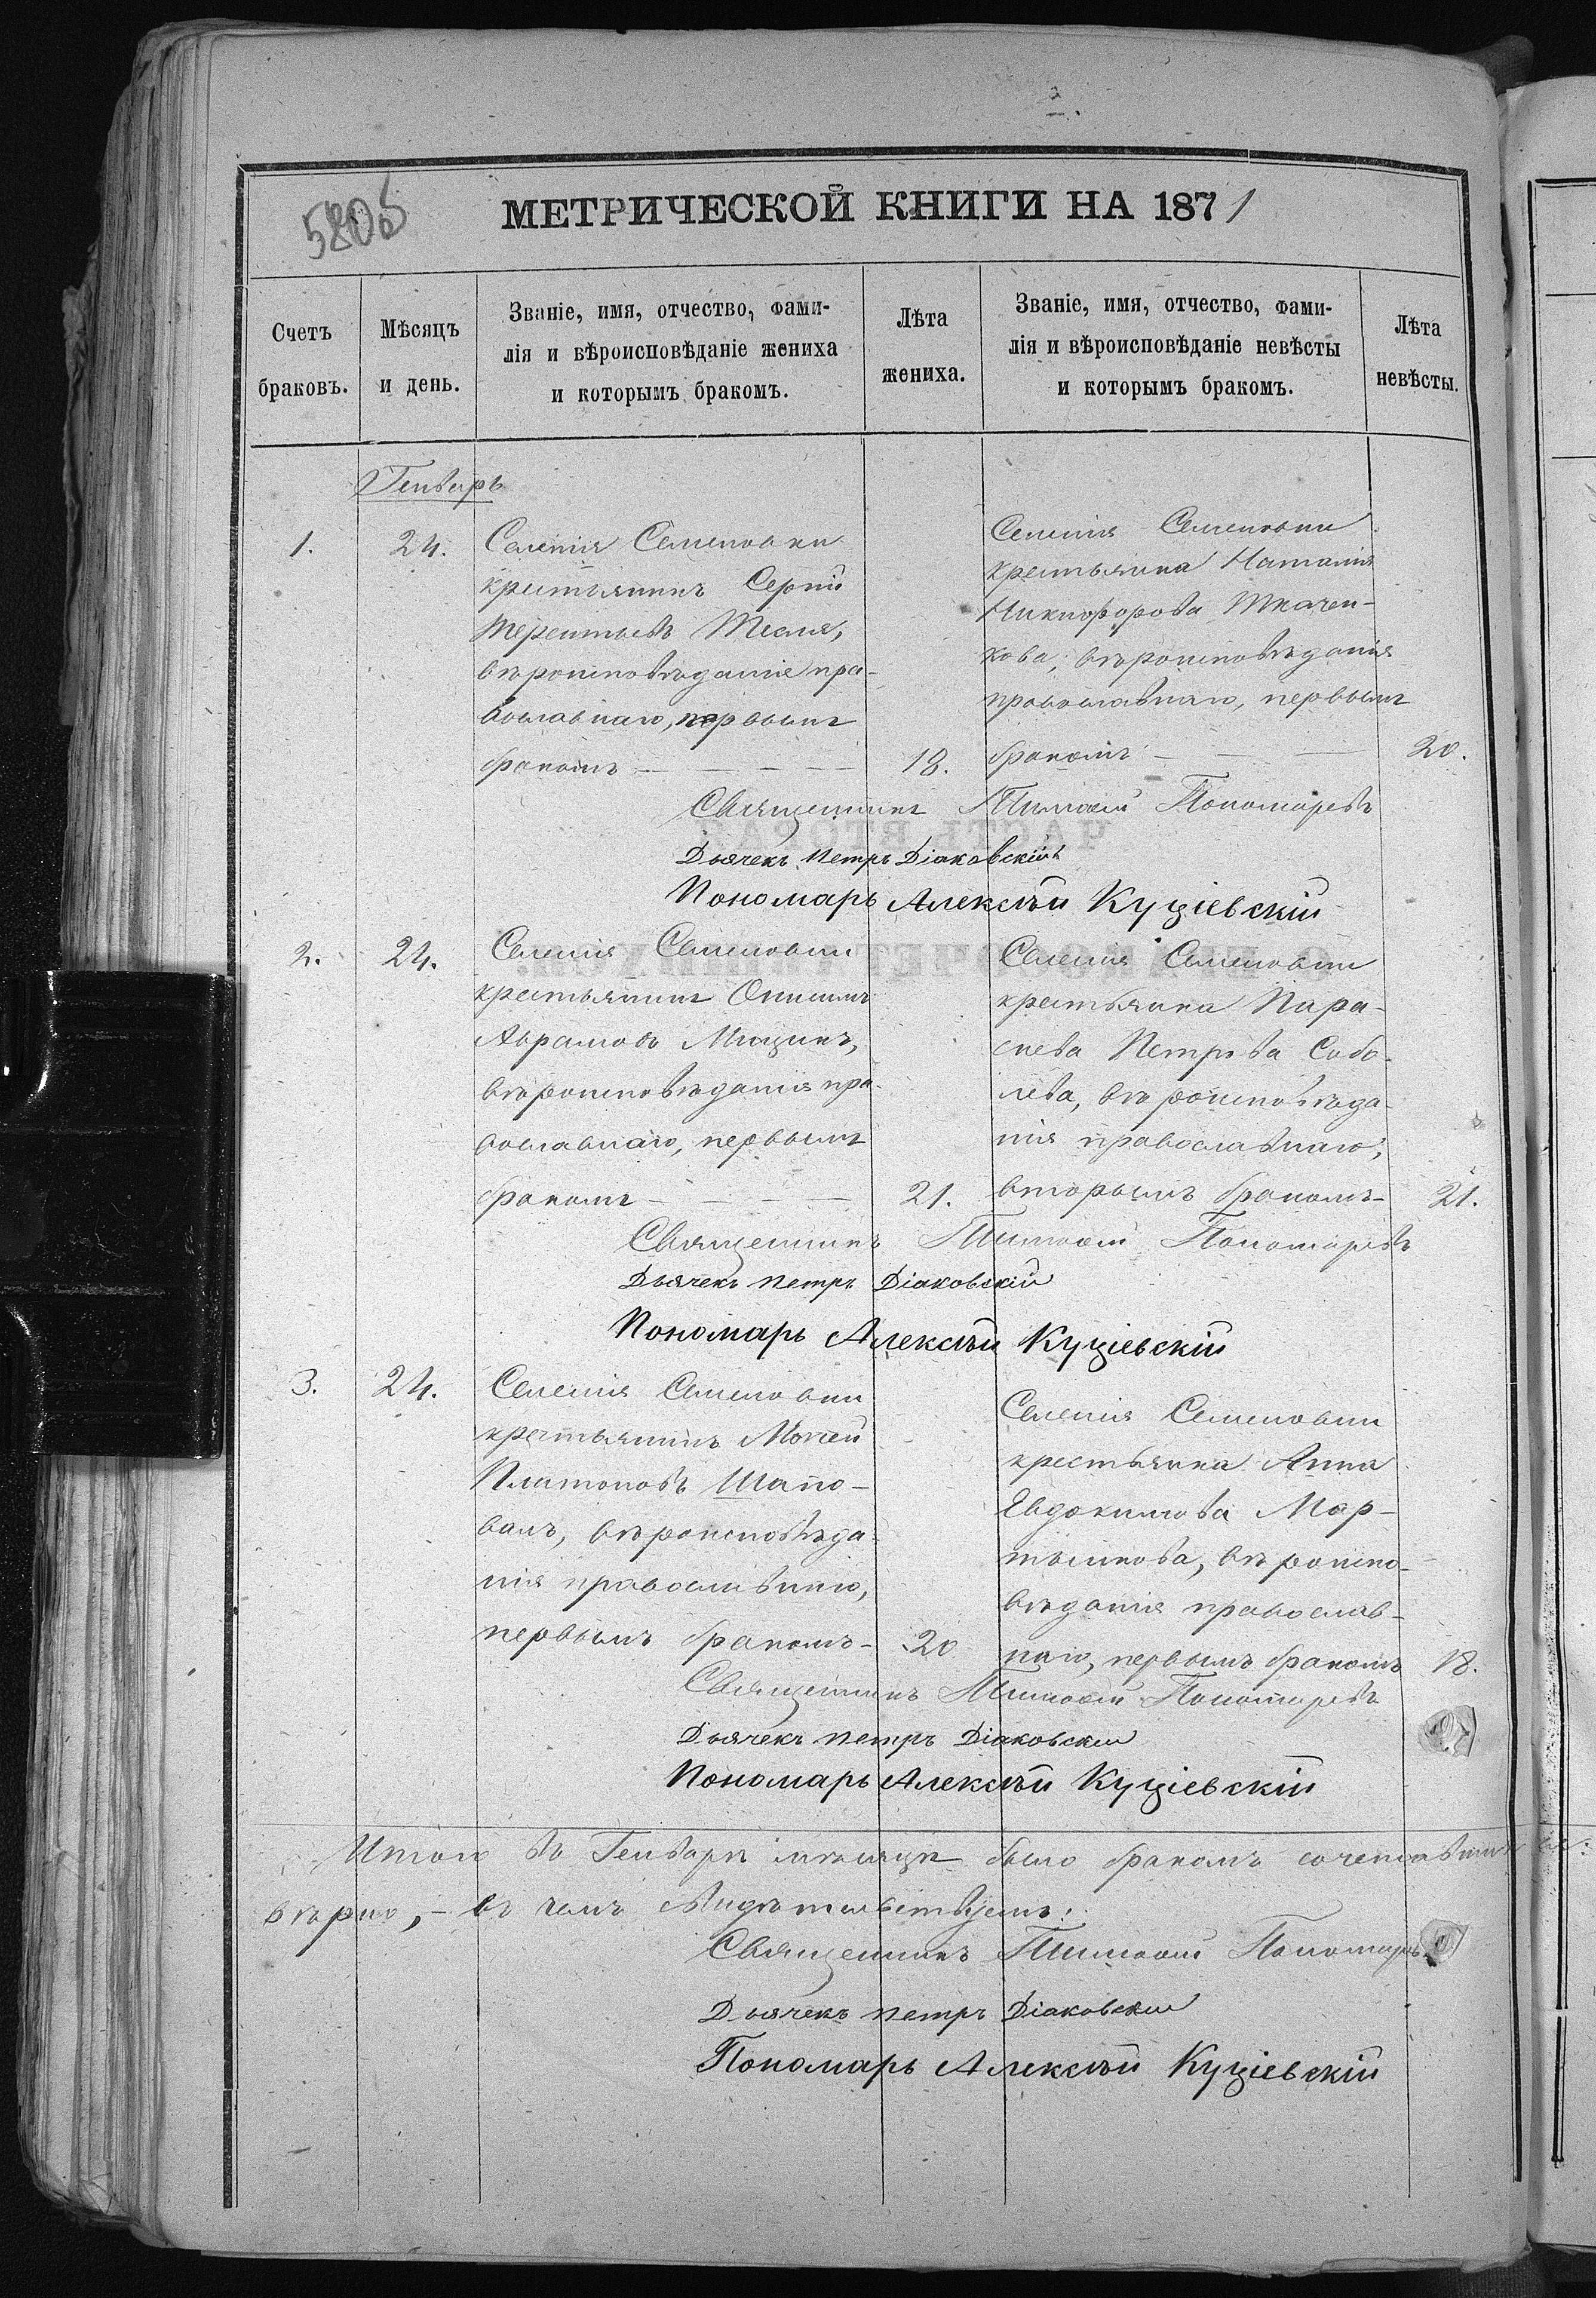 2.
5806
МЕТРИЧЕСКОЙ КНИГИ НА 1871
Счетъ браковъ.
Мѣсяцъ и день.
Званіе, имя, отчество, фами-
лія и вѣроисповѣданіе жениха
и которымъ бракомъ.
Лѣта жениха.
Званіе, имя, отчество, фами-
лія и вѣроисповѣданіе невѣсты
и которымъ бракомъ.
Лѣта невѣсты.
Генварь
1.
24.
Селенія Семеновки
крестьянинъ Сергій
Терентьевъ Тесля,
вѣроисповѣданія пра-
вославнаго, первымъ
бракомъ
18.
Селенія Семеновки
крестьянка Наталія
Никифорова Ткачен-
кова, вѣроисповѣданія
православнаго, первымъ
бракомъ
20.
Священникъ Тимофей Пономаревъ
Дьячекъ Петръ Діаковскій
Пономарь Алексѣй Куціевскій
2.
24.
Селенія Семеновки
крестьянинъ Онисимъ
Аврамовъ Мицикъ,
вѣроисповѣданія пра-
вославнаго, первымъ
бракомъ
21.
Селенія Семеновки
крестьянка Пара-
скева Петрова Собо-
лева, вѣроисповѣда-
нія православнаго,
вторымъ бракомъ
21.
Священникъ Тимофей Пономаревъ
Дьячекъ Петръ Діаковскій
Пономарь Алексѣй Куціевскій
3.
24.
Селенія Семеновки
крестьянинъ Моисей
Платоновъ Шапо-
валъ, вѣроисповѣда-
нія православнаго,
первымъ бракомъ
20
Селенія Семеновки
крестьянка Анна
Евдокимова Мар-
тынкова, вѣроиспо-
вѣданія православ-
наго, первымъ бракомъ
18.
Священникъ Тимофей Пономаревъ
Дьячекъ Петръ Діаковскій
Пономарь Алексѣй Куціевскій
Итого въ Генварѣ мѣсяцѣ было бракомъ сочетавших
вѣрно, – въ чемъ свидѣтельствуемъ:
Священникъ Тимофей Пономарев
Дьячекъ Петръ Діаковскій
Пономарь Алексѣй Куціевскій